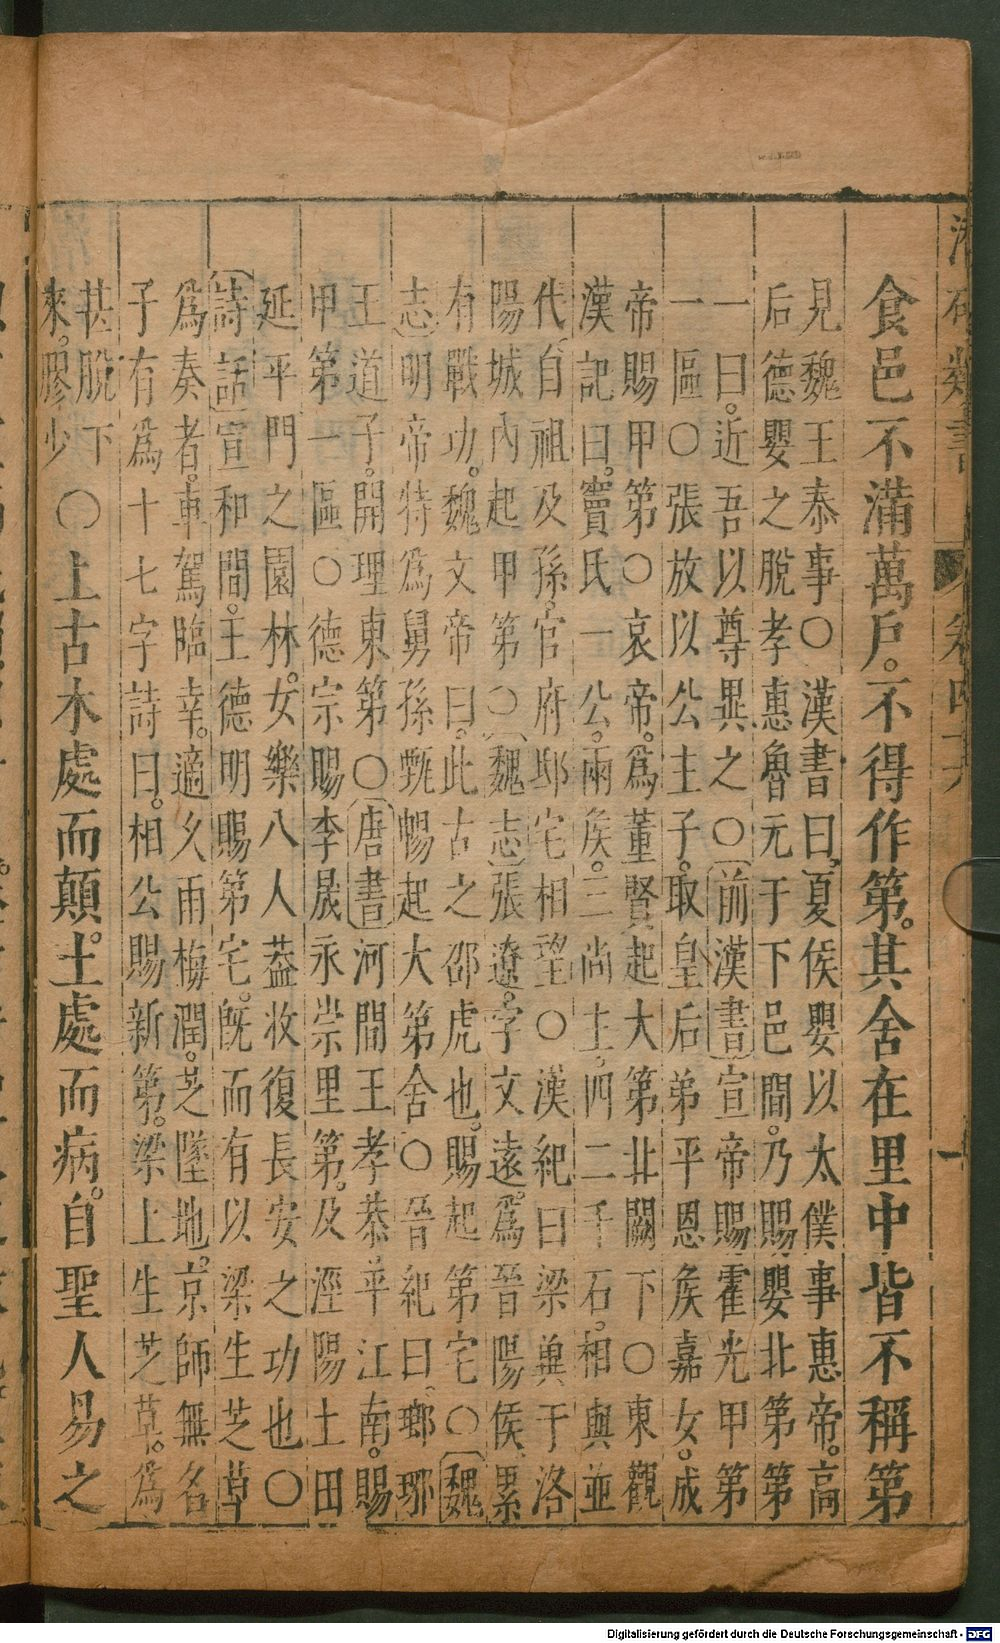 類書 卷四十六
食邑不滿萬戶。不得作第。其舍在里中皆不稱第
見魏王泰事○漢書曰。夏侯嬰以太僕事惠帝。高
后德嬰之脫孝惠魯元于下邑間。乃賜嬰北第第
一曰。近吾以尊異之○前漢書宣帝賜霍光甲第
一區○張放以公主子。取皇后弟平恩侯嘉女。成
帝賜甲第○哀帝。爲董賢起大第北闕下○東觀
漢記曰。竇氏一公。兩侯。三尚主。四二千石。相與並
代。自祖及孫。官府邸宅相望○漢紀曰梁冀于洛
陽城內起甲第○魏志張遼。字文遠。爲晉陽侯累
有戰功。魏文帝曰。此古之邵虎也。賜起第宅○魏
志明帝特爲舅孫甄暢起大第舍○晉紀曰。瑯琊
王道子。開理東第○唐書河間王孝恭。平江南。賜
甲第一區○德宗賜李晟永崇里第。及涇陽土田
延平門之園林。女樂八人葢收復長安之功也○
詩話宣和間。王德明賜第宅。旣而有以梁生芝草
爲奏者。車駕臨幸。適久雨梅潤。芝墜地。京師無名
子有爲十七字詩曰。相公賜新第。梁上生芝草。爲
甚脫下
來。膠少
○上古木處而顛。土處而病。自聖人易之
Digitalisierung gefördert durch die Deutsche Forschungsgemeinschaft - DFG